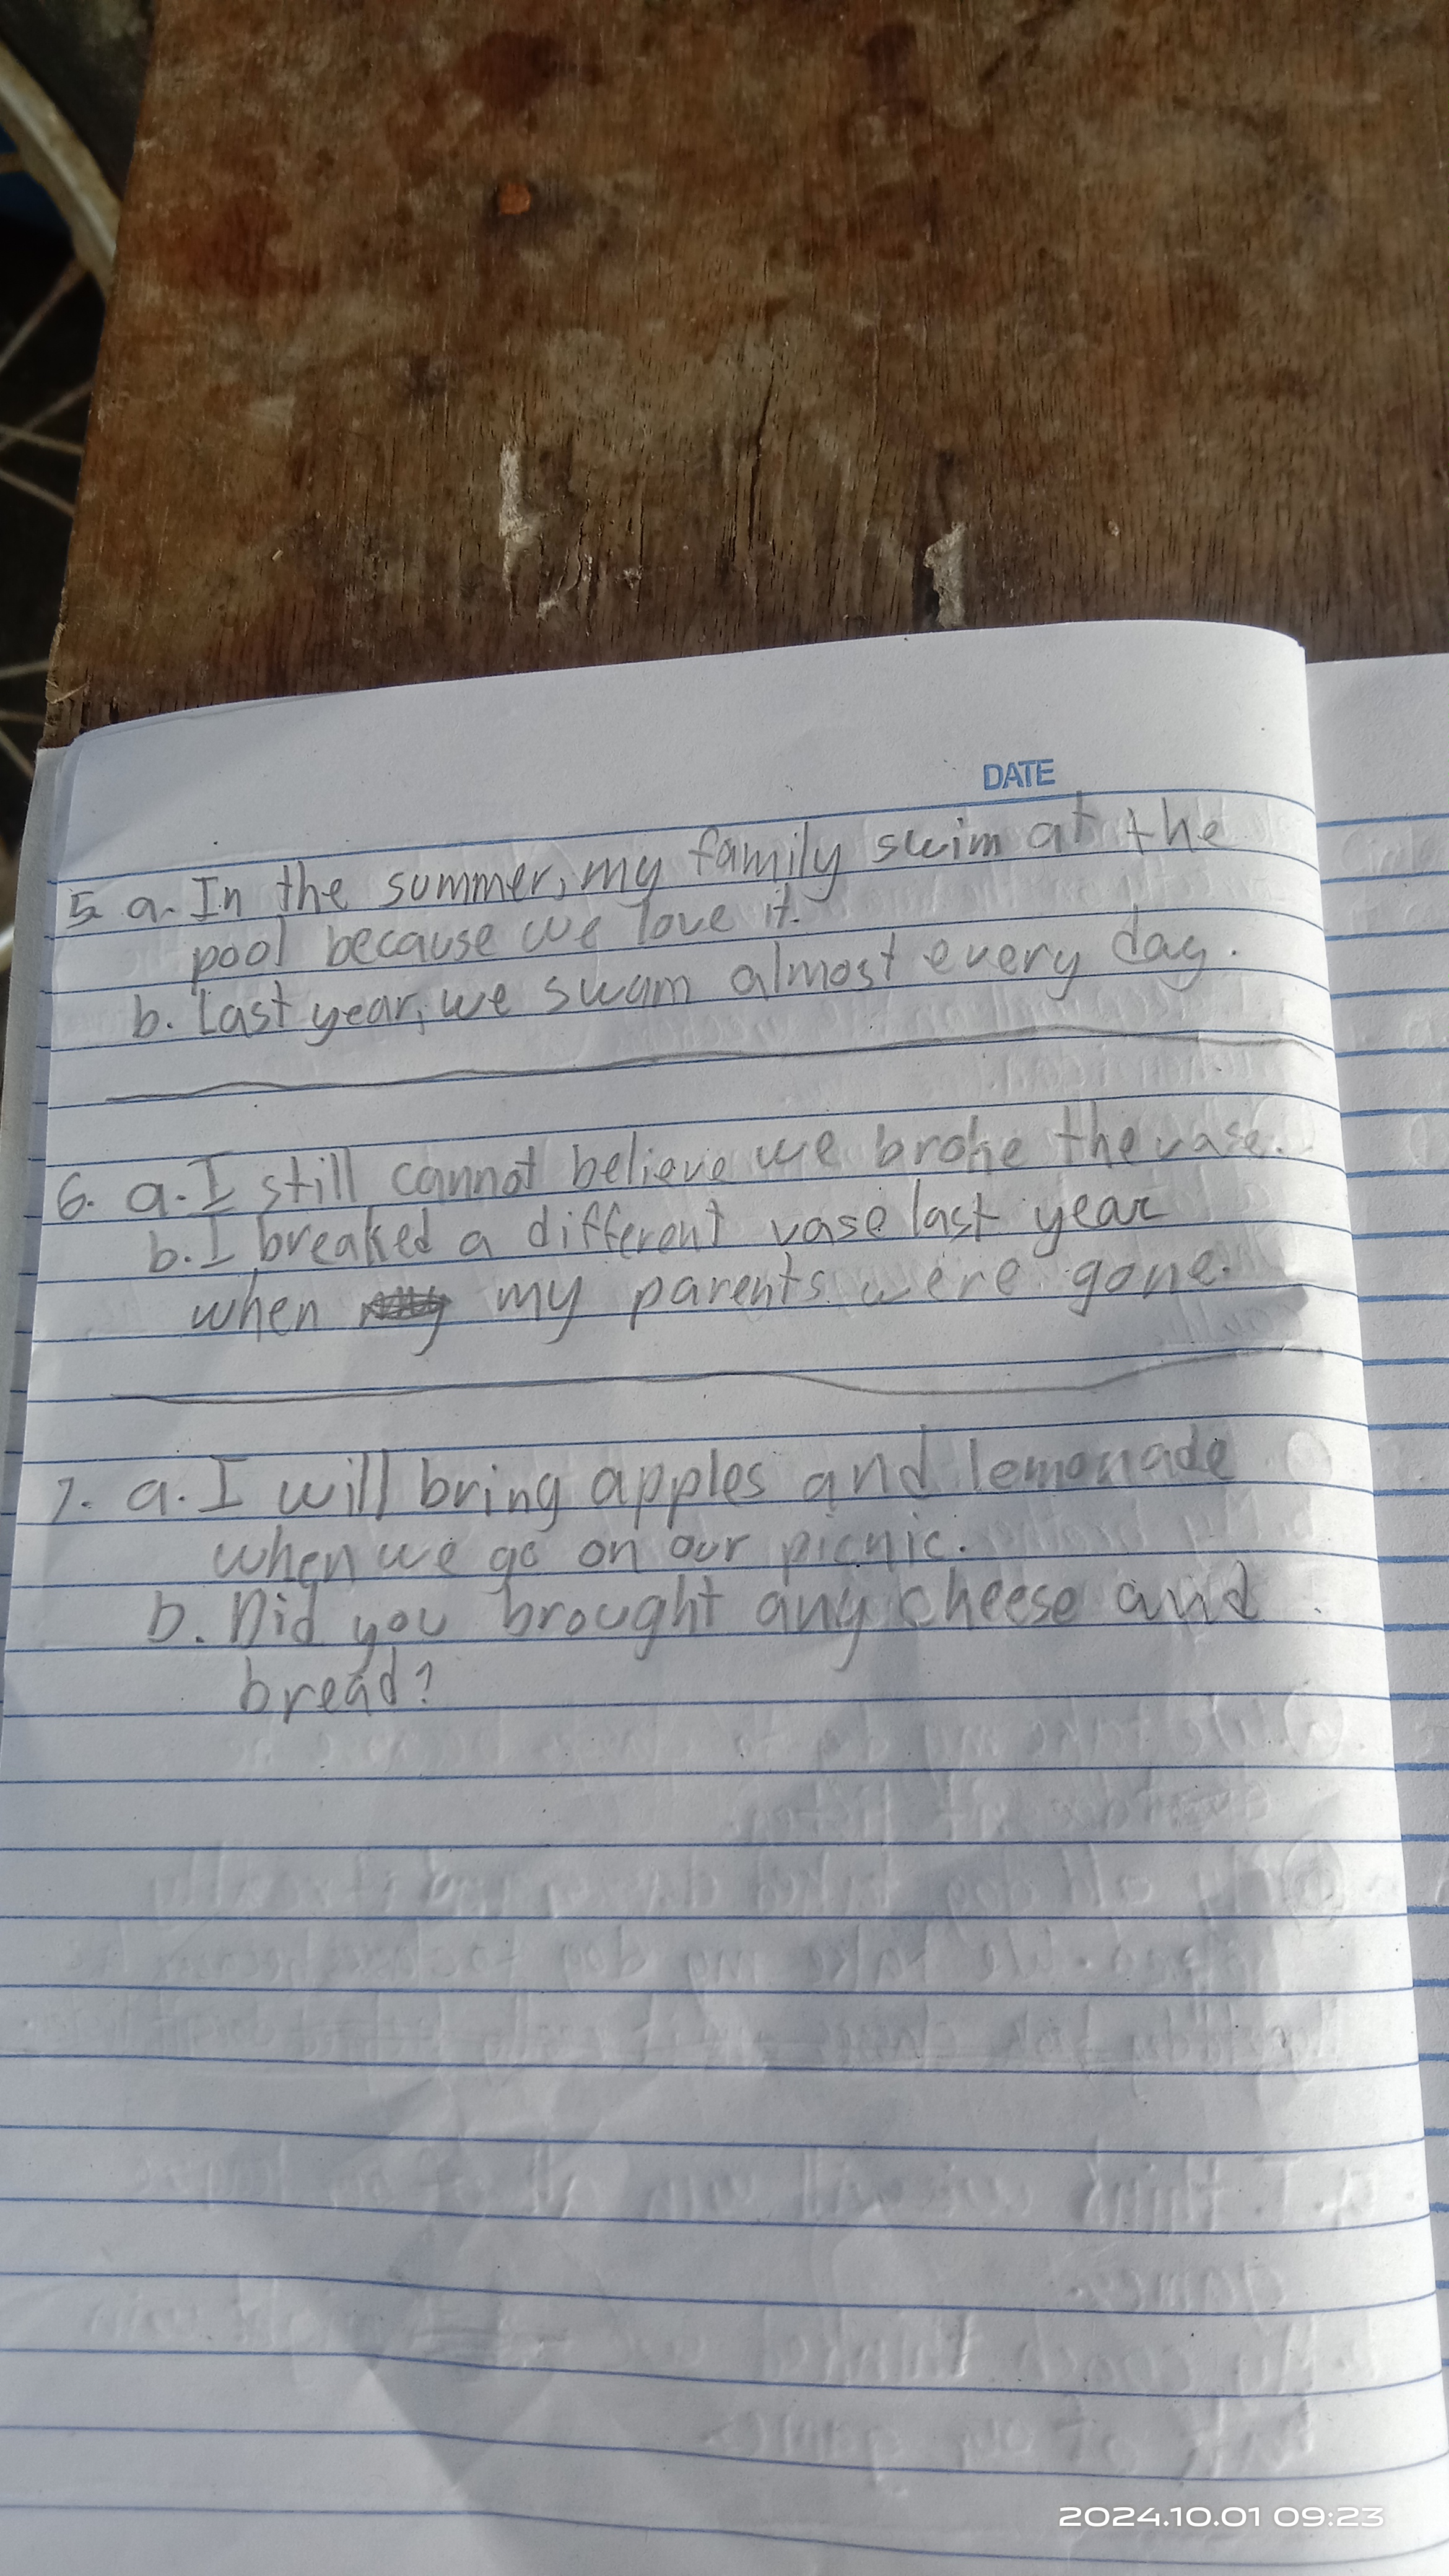 DATE
5 a. In the summer, my family swim at the
pool because we love it.
b. Last year, we swam almost every day.
6. a. I still cannot believe we broke the vase.
b. I breaked a different vase last year
when my parents were gone.
7. a. I will bring apples and lemonade
when we go on our picnic.
b. Did you brought any cheese and
bread?
2024.10.01 09:23